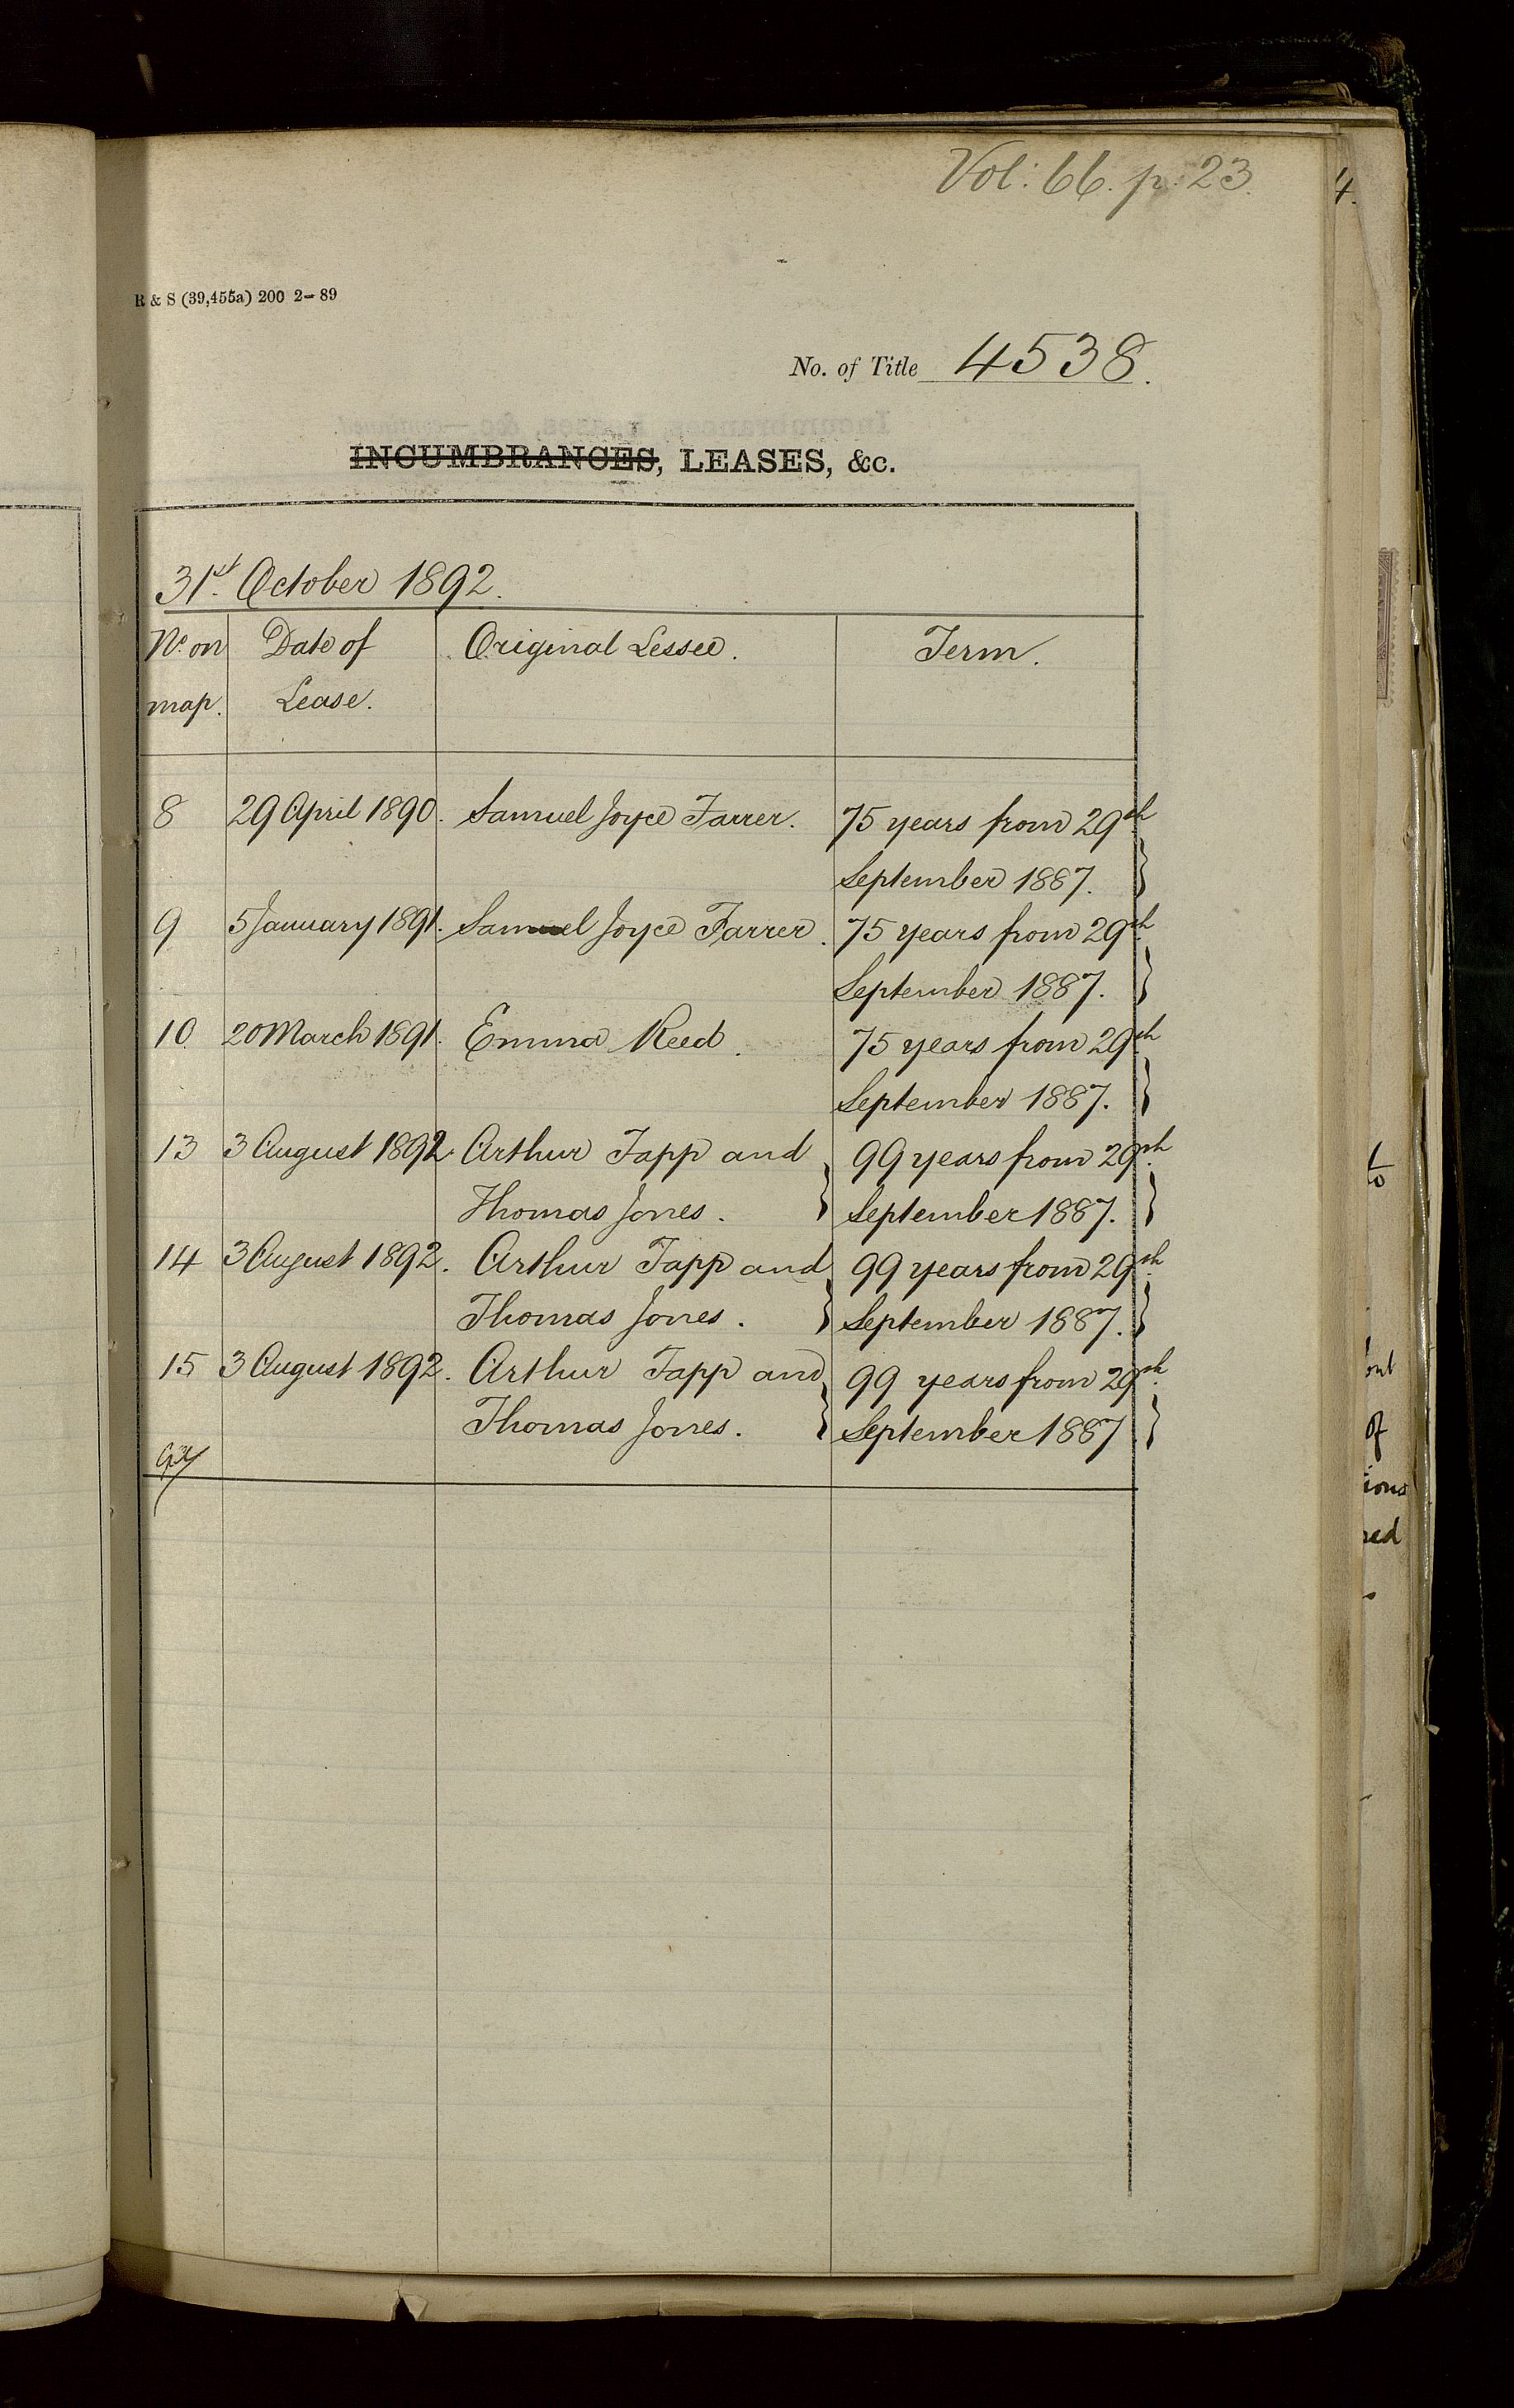 Vol: 66. p. 23.
4.
R & S (39,455a) 200 2-89
No. of Title 4538.
INCUMBRANCES, LEASES, &c.
31st October 1892.
No. on Date of Original Lessee. Term.
map. Lease.
8 29 April 1890. Samuel Joyce Farrer. 75 years from 29th
September 1887.
9 5 January 1891. Samuel Joyce Farrer. 75 years from 29th
September 1887.
10 20 March 1891. Emma Reed. 75 years from 29th
September 1887.
13 3 August 1892. Arthur Tapp and 99 years from 29th
Thomas Jones. September 1887.
14 3 August 1892. Arthur Tapp and 99 years from 29th
Thomas Jones. September 1887.
15 3 August 1892. Arthur Tapp and 99 years from 29th
Thomas Jones. September 1887
of